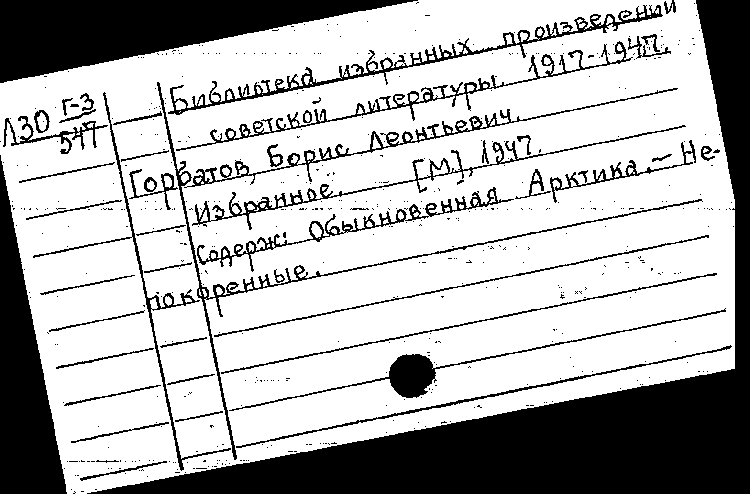 Библиотека избранных произведений
Л30 Г-3/547 советской литературы. 1917-1947.
Горбатов, Борис Леонтьевич.
Избранное. [М.], 1947.
Содерж: Обыкновенная Арктика. — Не-
покоренные.